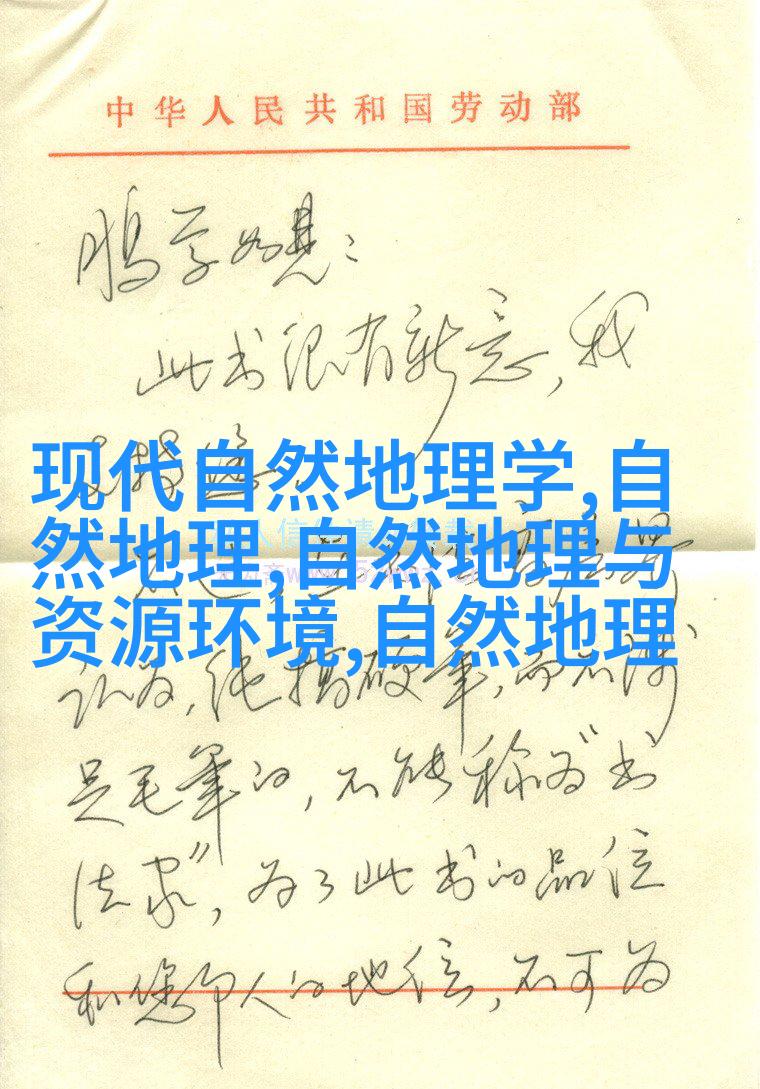 中华人民共和国劳动部
鹏学如晤：
此书很有新意，我
现代自然地理学,自
然地理,自然地理与
资源环境,自然地理
认为，纯搞硬笔，而不涉
足毛笔的，不能称为"书
法家"，为了此书的品位
和您个人的地位，不可为